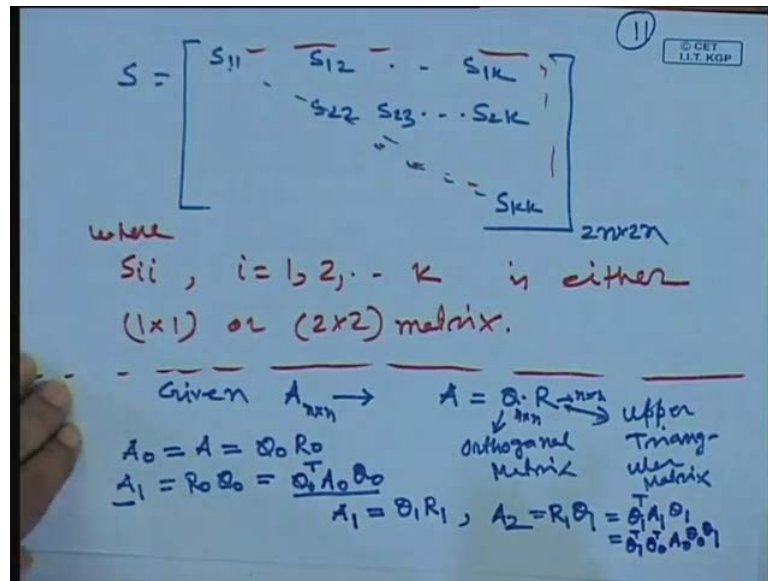 11
© CET
I.I.T. KGP
S = [ S11 – S12 . . – S1K
S22 S23 . . . S2K
SKK ] 2n×2n
where
Sii , i = 1, 2, . . K is either
(1×1) or (2×2) matrix.
Given A n×n → A = Q . R → n×n
n×n
Orthoganal
Matrix
Upper
Triang-
uler
Matrix
A0 = A = Q0 R0
A1 = R0 Q0 = Q0^T A0 Q0
A1 = Q1 R1 , A2 = R1 Q1 = Q1^T A1 Q1
= Q1^T Q0^T A0 Q0 Q1